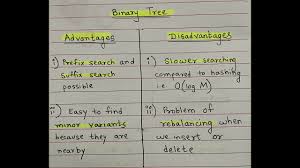 Binary Tree
Advantages
Disadvantages
i) Prefix search and
suffix search
possible
ii) Easy to find
minor variants
because they are
nearby
i) Slower searching
compared to hashing
i.e. O(log M)
ii) Problem of
rebalancing when
we insert or
delete